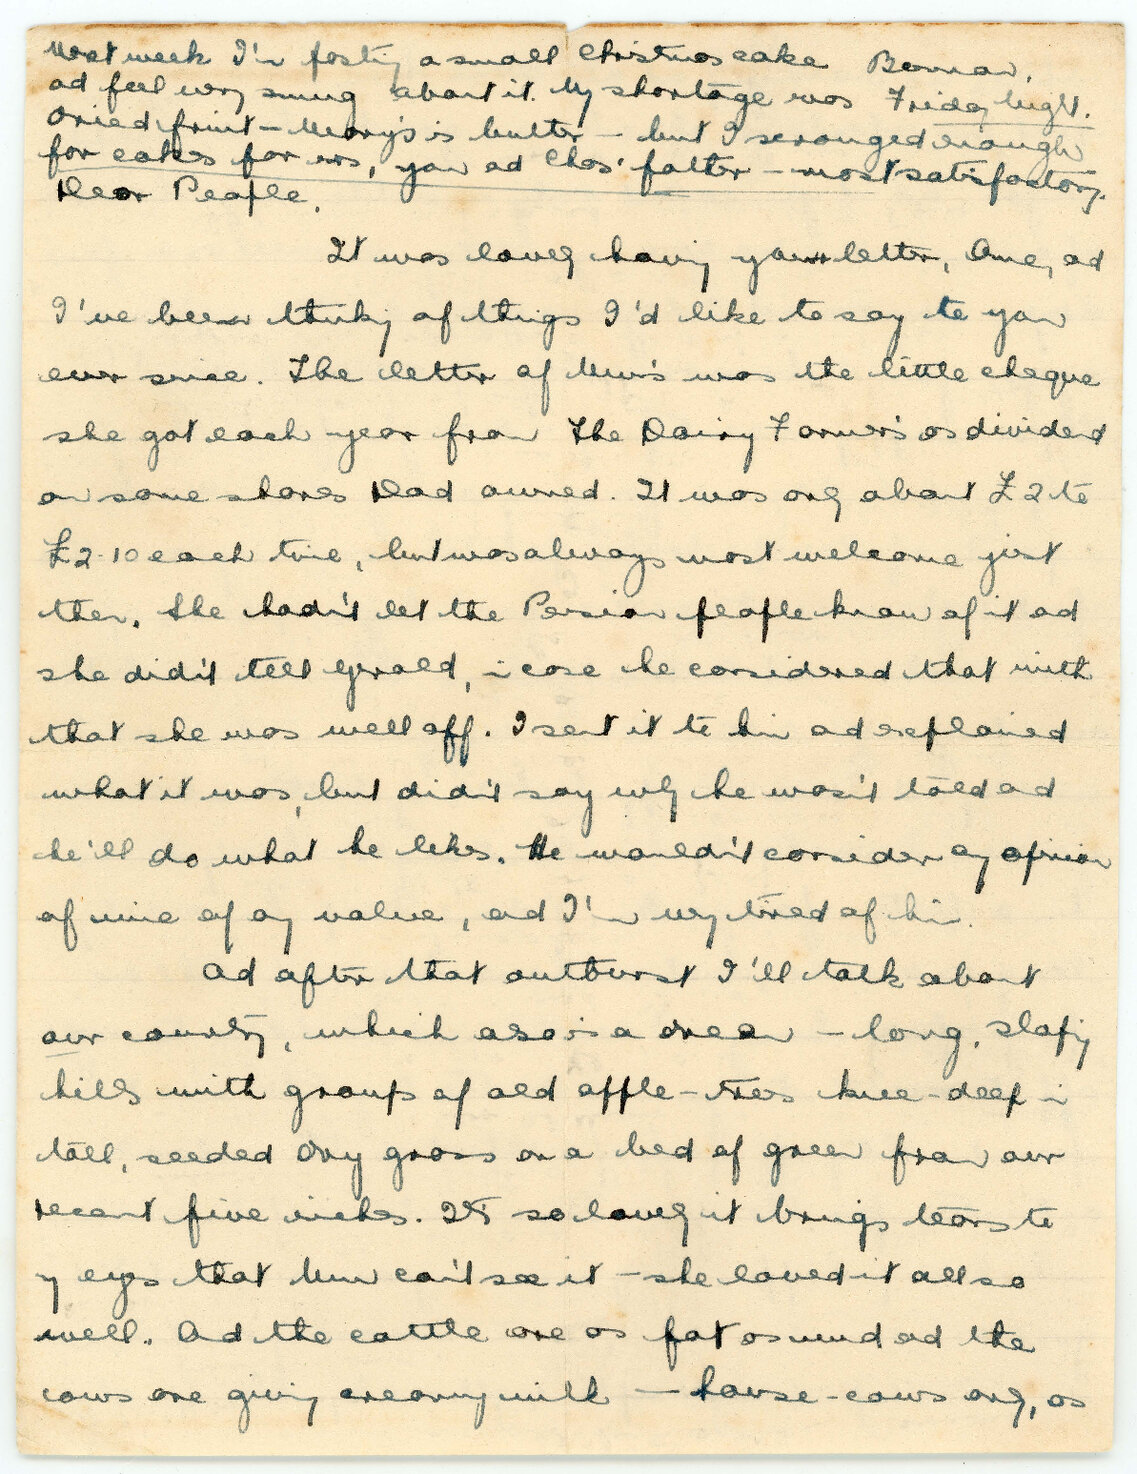 Next week I'm posting a small Christmas cake Bomar,
and feel very smug about it. My shortage was Friday Night.
Dried fruit - Mary's is butter - but I scrounged enough
for cakes for us, you and Chas' father - most satisfactory.
Dear People,
It was lovely having your letter, and
I've been thinking of things I'd like to say to you
ever since. The letter of Mum's was the little cheque
she got each year from The Dairy Farmers as dividend
on some shares Dad owned. It was only about £2 to
£2-10 each time, but was always most welcome just
then. She hadn't let the Pension people know of it and
she didn't tell Gerald, in case he considered that with
that she was well off. I sent it to him and explained
what it was, but didn't say why he wasn't told and
he'll do what he likes. He wouldn't consider any opinion
of mine of any value, and I'm very tired of him.
And after that outburst I'll talk about
our country, which is a dream - long, sloping
hills with groups of old apple-trees knee-deep in
tall, seeded dry grass on a bed of green from our
recent five inches. It's so lovely it brings tears to
my eyes that Mum can't see it - she loved it all so
well. And the cattle are as fat as mud and the
cows are giving creamy milk - house-cows only, as